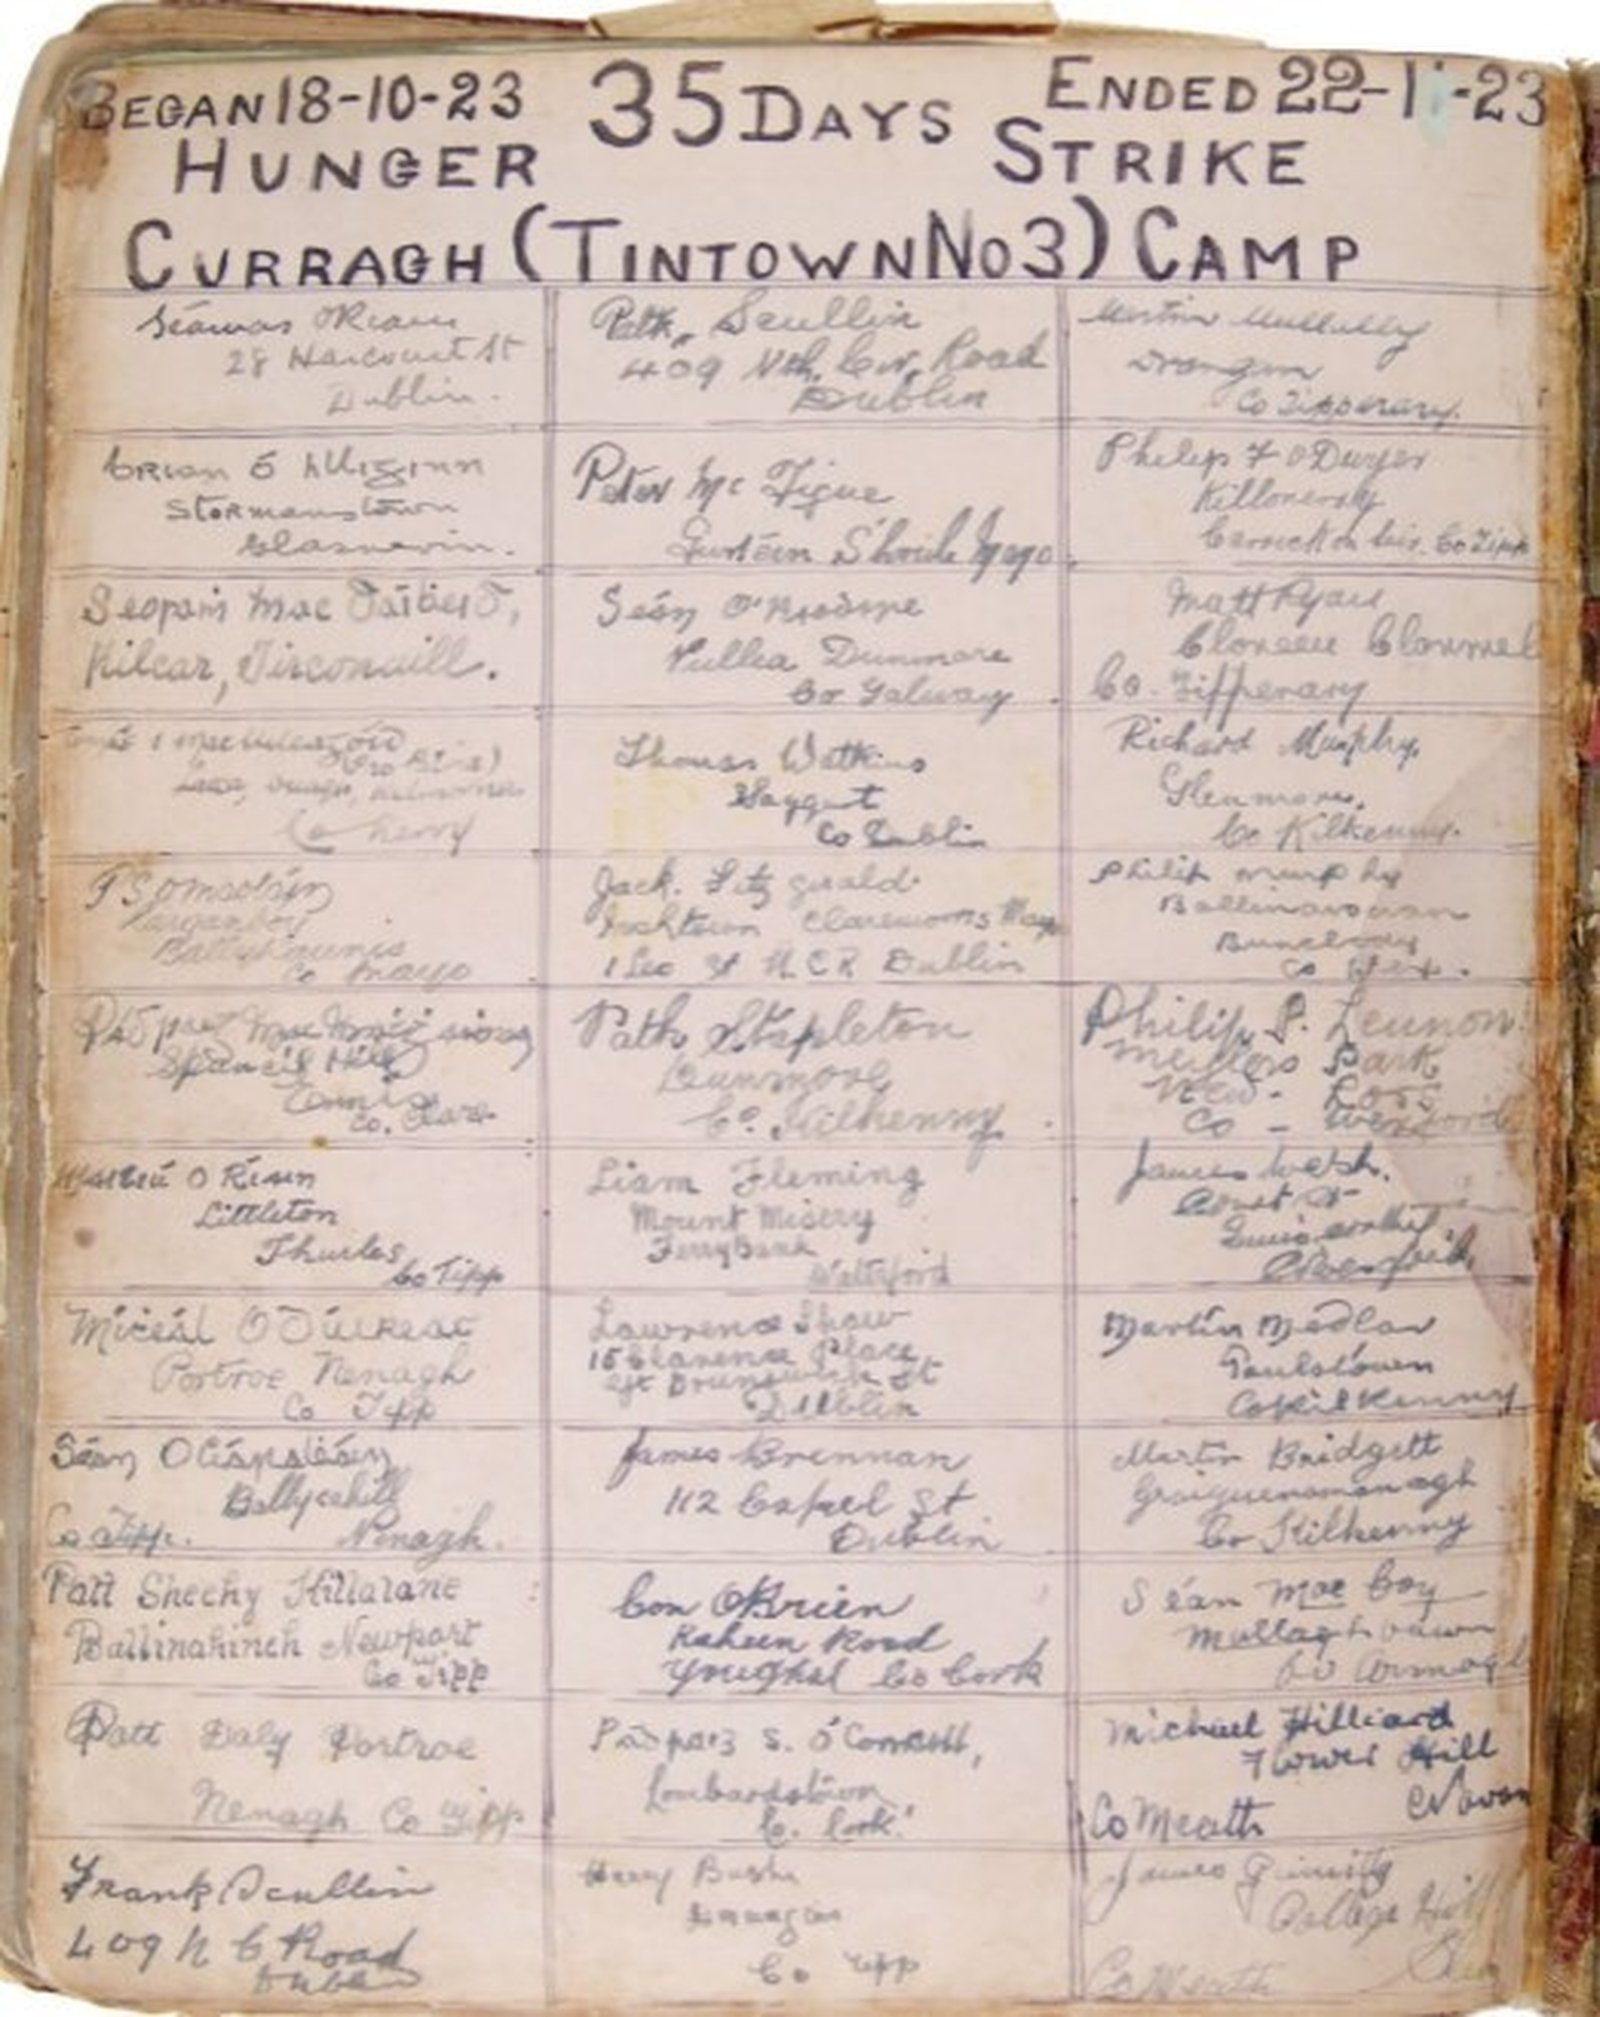 BEGAN 18-10-23 35 DAYS ENDED 22-11-23
HUNGER STRIKE
CURRAGH (TINTOWN No 3) CAMP
Séamas
28 Harcourt St
Dublin.
Patk. Scullin
409 Nth. Cir. Road
Dublin
Martin Mullally
Drangan
Co Tipperary.
Brian Ó hUiginn
Stormanstown
Glasnevin.
Peter Mc Tigue
Mayo
Philip F O Dwyer
Carrick on Suir. Co Tipp
Mac
Kilcar, Tirconaill.
Seán
Dunmore
Co Galway
Matt Ryan
Cloneen Clonmel
Co. Tipperary
Co Kerry
Thomas Watkins
Saggart
Co Dublin
Richard Murphy.
Glenmore,
Co Kilkenny.
Co Mayo
Jack. Fitzgerald
Claremorris Mayo
1 Leo St N C R Dublin
Philip Murphy
Bunclody
Spancil Hill
Ennis
Co. Clare
Patk Stapleton
Dunmore
Co. Kilkenny
Philip P. Lennon
Mellers Park
New - Ross
Co - Wexford
O Riain
Littleton
Thurles
Co Tipp
Liam Fleming
Mount Misery
Ferrybank
Waterford
James Welsh.
Court St
Enniscorthy
Wexford.
Micéal
Portroe Nenagh
Co Tipp
Lawrence Shaw
15 Clarence Place
Gt Brunswick St
Dublin
Martin Medlar
Paulstown
Co Kilkenny
Seán
Ballycahill
Co Tipp. Nenagh.
James Brennan
112 Capel St
Dublin
Martin Bridgett
Graiguenamanagh
Co Kilkenny
Patt Sheehy Killarane
Ballinahinch Newport
Co Tipp
Con O'Brien
Raheen Road
Youghal Co Cork
Seán Mac Coy
Mullaghbawn
Co Armagh
Patt Daly Portroe
Nenagh Co Tipp
S. O'Connell,
Lombardstown
C. Cork.
Michael Hilliard
Flower Hill
Navan
Co Meath
Frank Scullin
409 N C Road
Dublin
Drangan
Co Tipp
James
College Hill
Co Meath